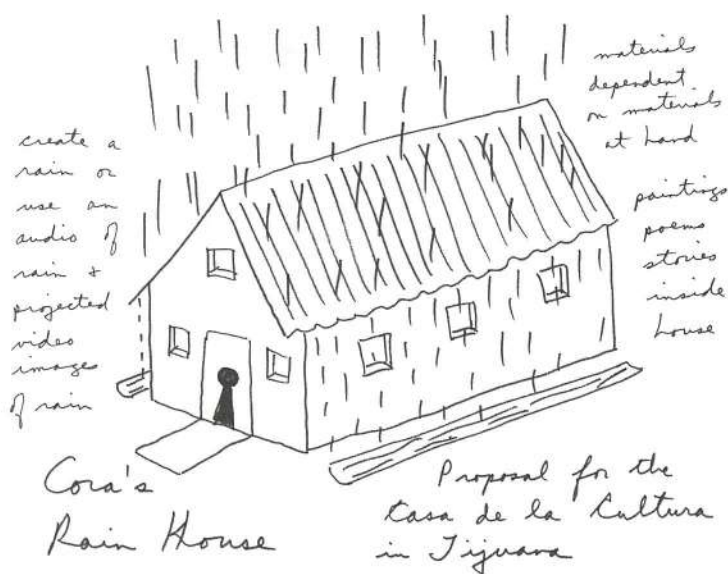 create a
rain or
use an
audio of
rain &
projected
video
images
of rain
materials
dependent
on materials
at hand
paintings
poems
stories
inside
house
Cora's
Rain House
Proposal for the
Casa de la Cultura
in Tijuana